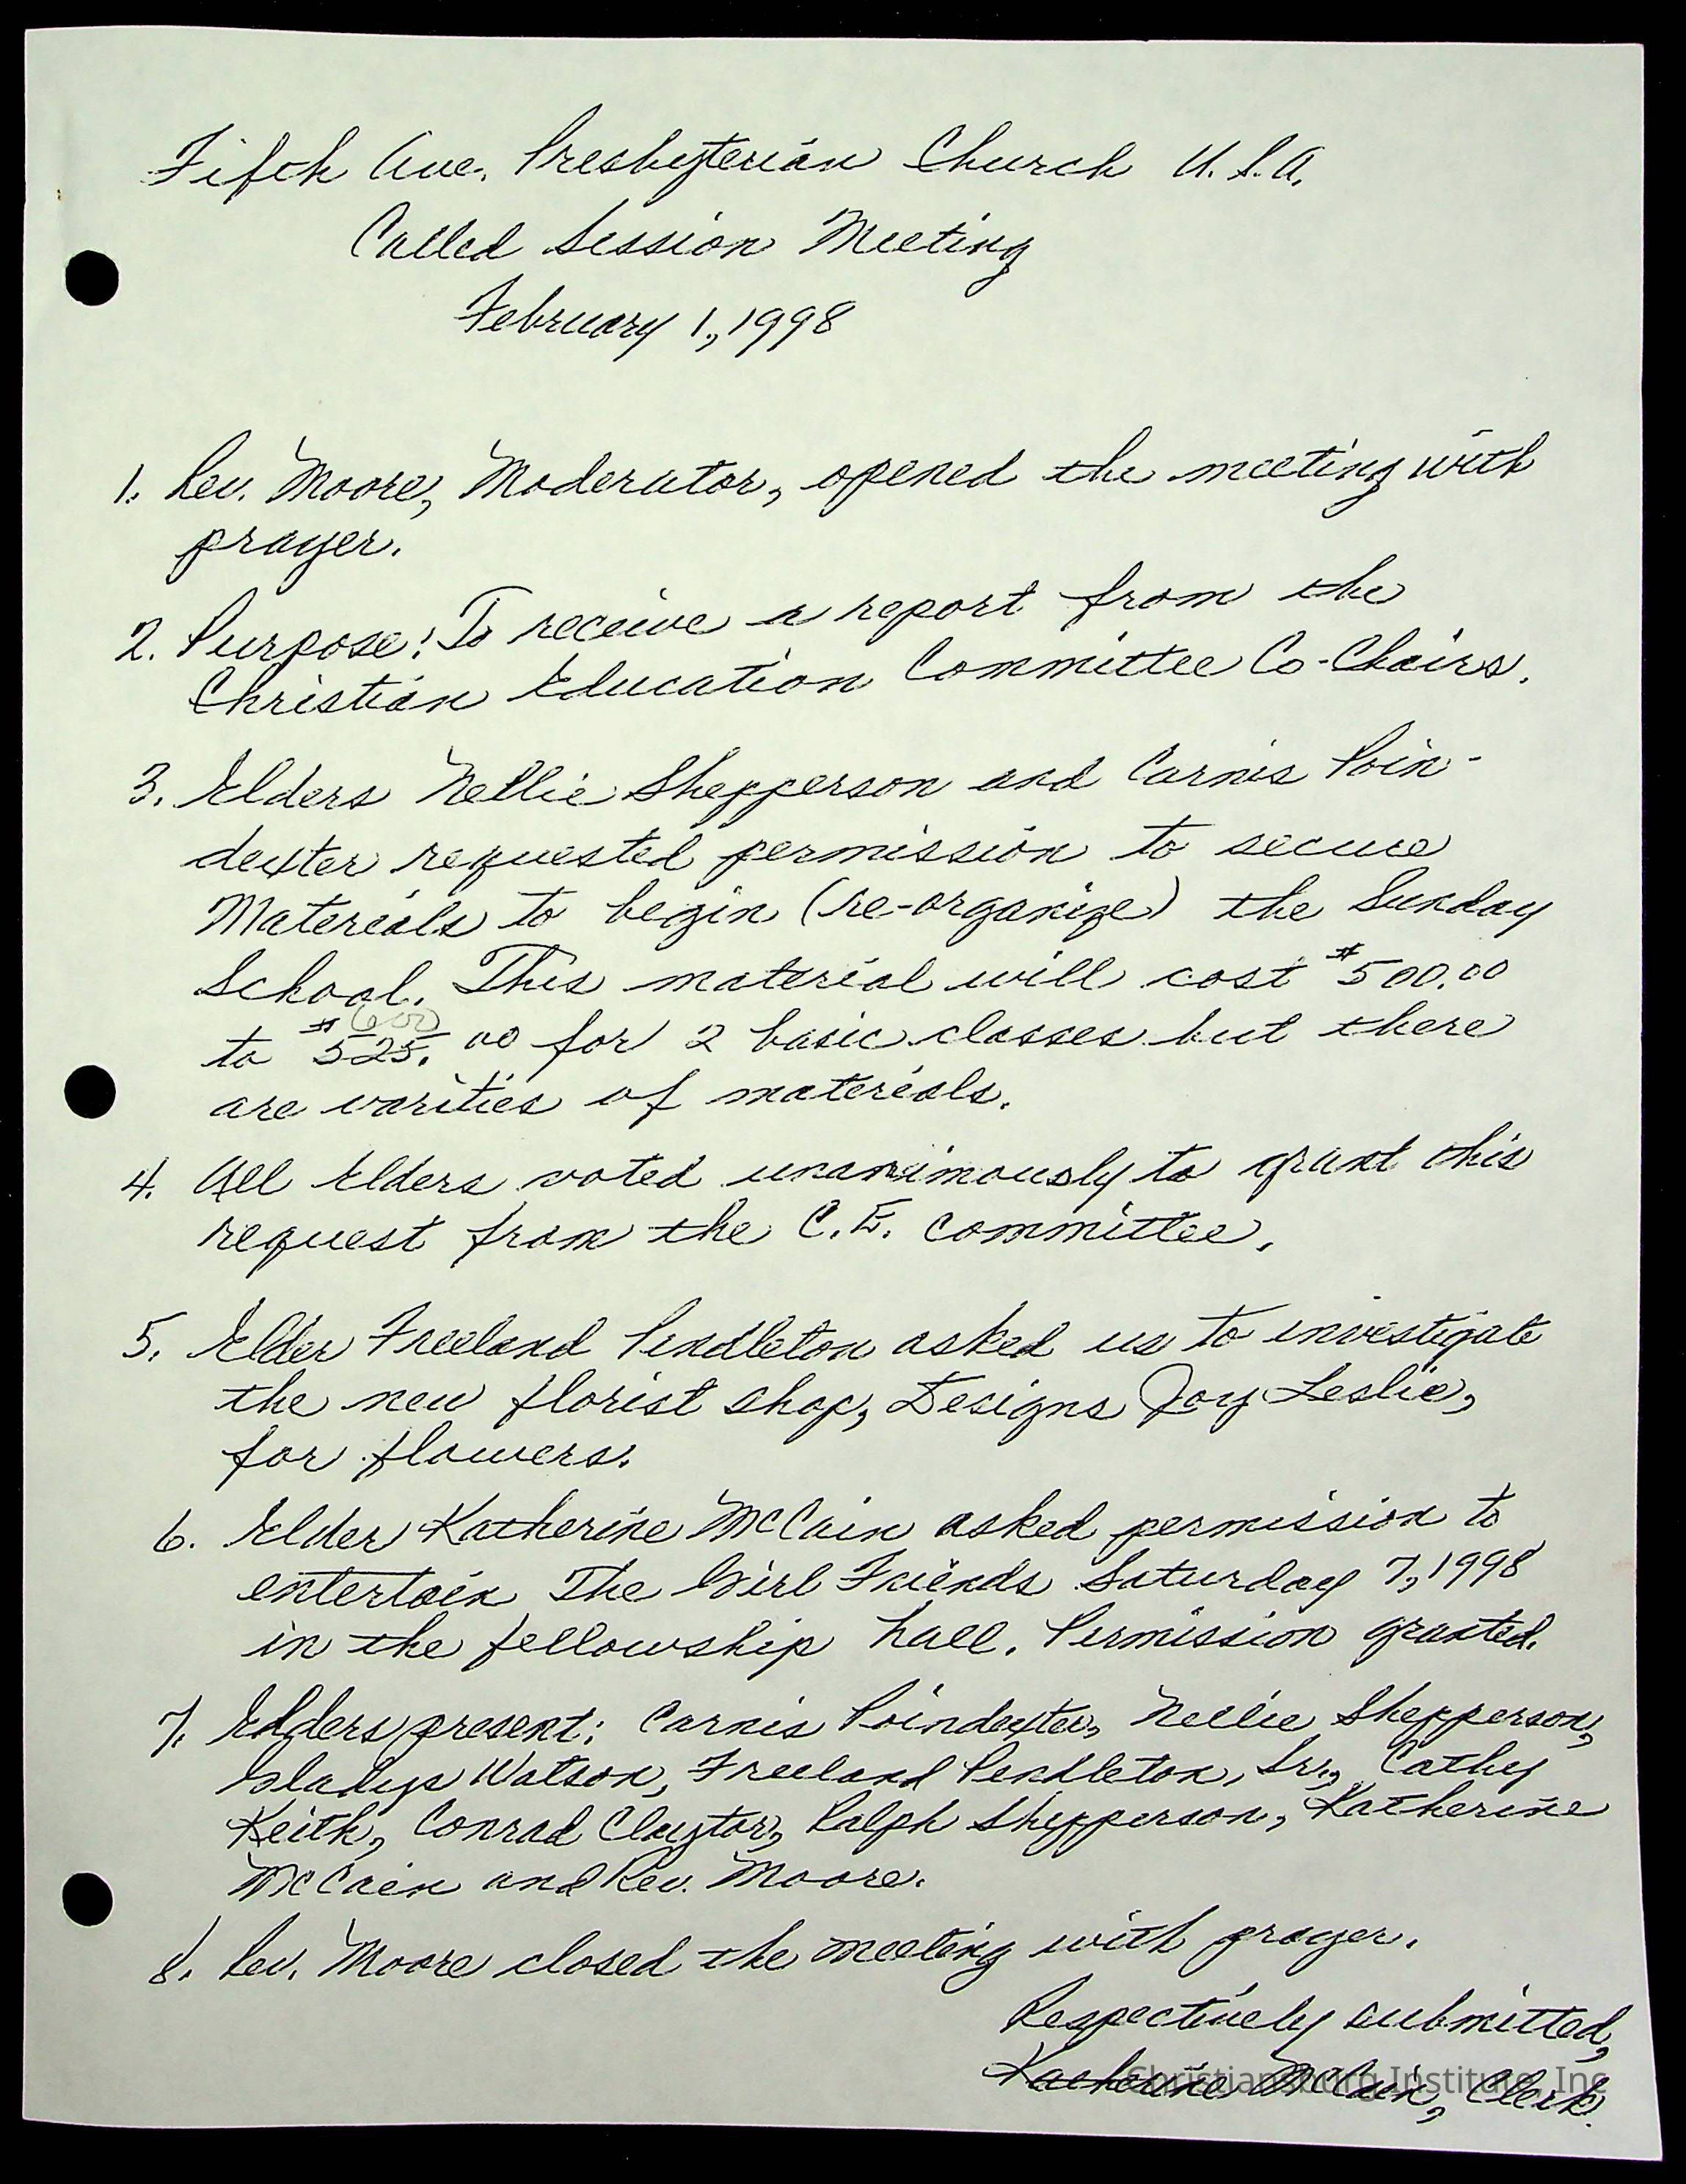 Fifth Ave. Presbyterian Church U.S.A.
Called Session Meeting
February 1, 1998
1. Rev. Moore, Moderator, opened the meeting with
prayer.
2. Purpose: To receive a report from the
Christian Education Committee Co-Chairs.
3. Elders Nellie Shepperson and Carnis Poin-
dexter requested permission to secure
Materials to begin (re-organize) the Sunday
School. This material will cost $500.00
600
to $525.00 for 2 basic classes but there
are varities of materials.
4. All Elders voted unanimously to grant this
request from the C.E. Committee.
5. Elder Freeland Pendleton asked us to investigate
the new florist shop, Designs Joy Leslie,
for flowers.
6. Elder Katherine McCain asked permission to
entertain The Girl Friends Saturday 7, 1998
in the fellowship hall. Permission granted.
7. Elders present: Carnis Poindexter, Nellie Shepperson,
Gladys Watson, Freeland Pendleton, Sr., Cathy
Keith, Conrad Claytor, Ralph Shepperson, Katherine
McCain and Rev. Moore.
8. Rev. Moore closed the meeting with prayer.
Respectively submitted,
Katherine McCain, Clerk.
Christiansburg Institute, Inc